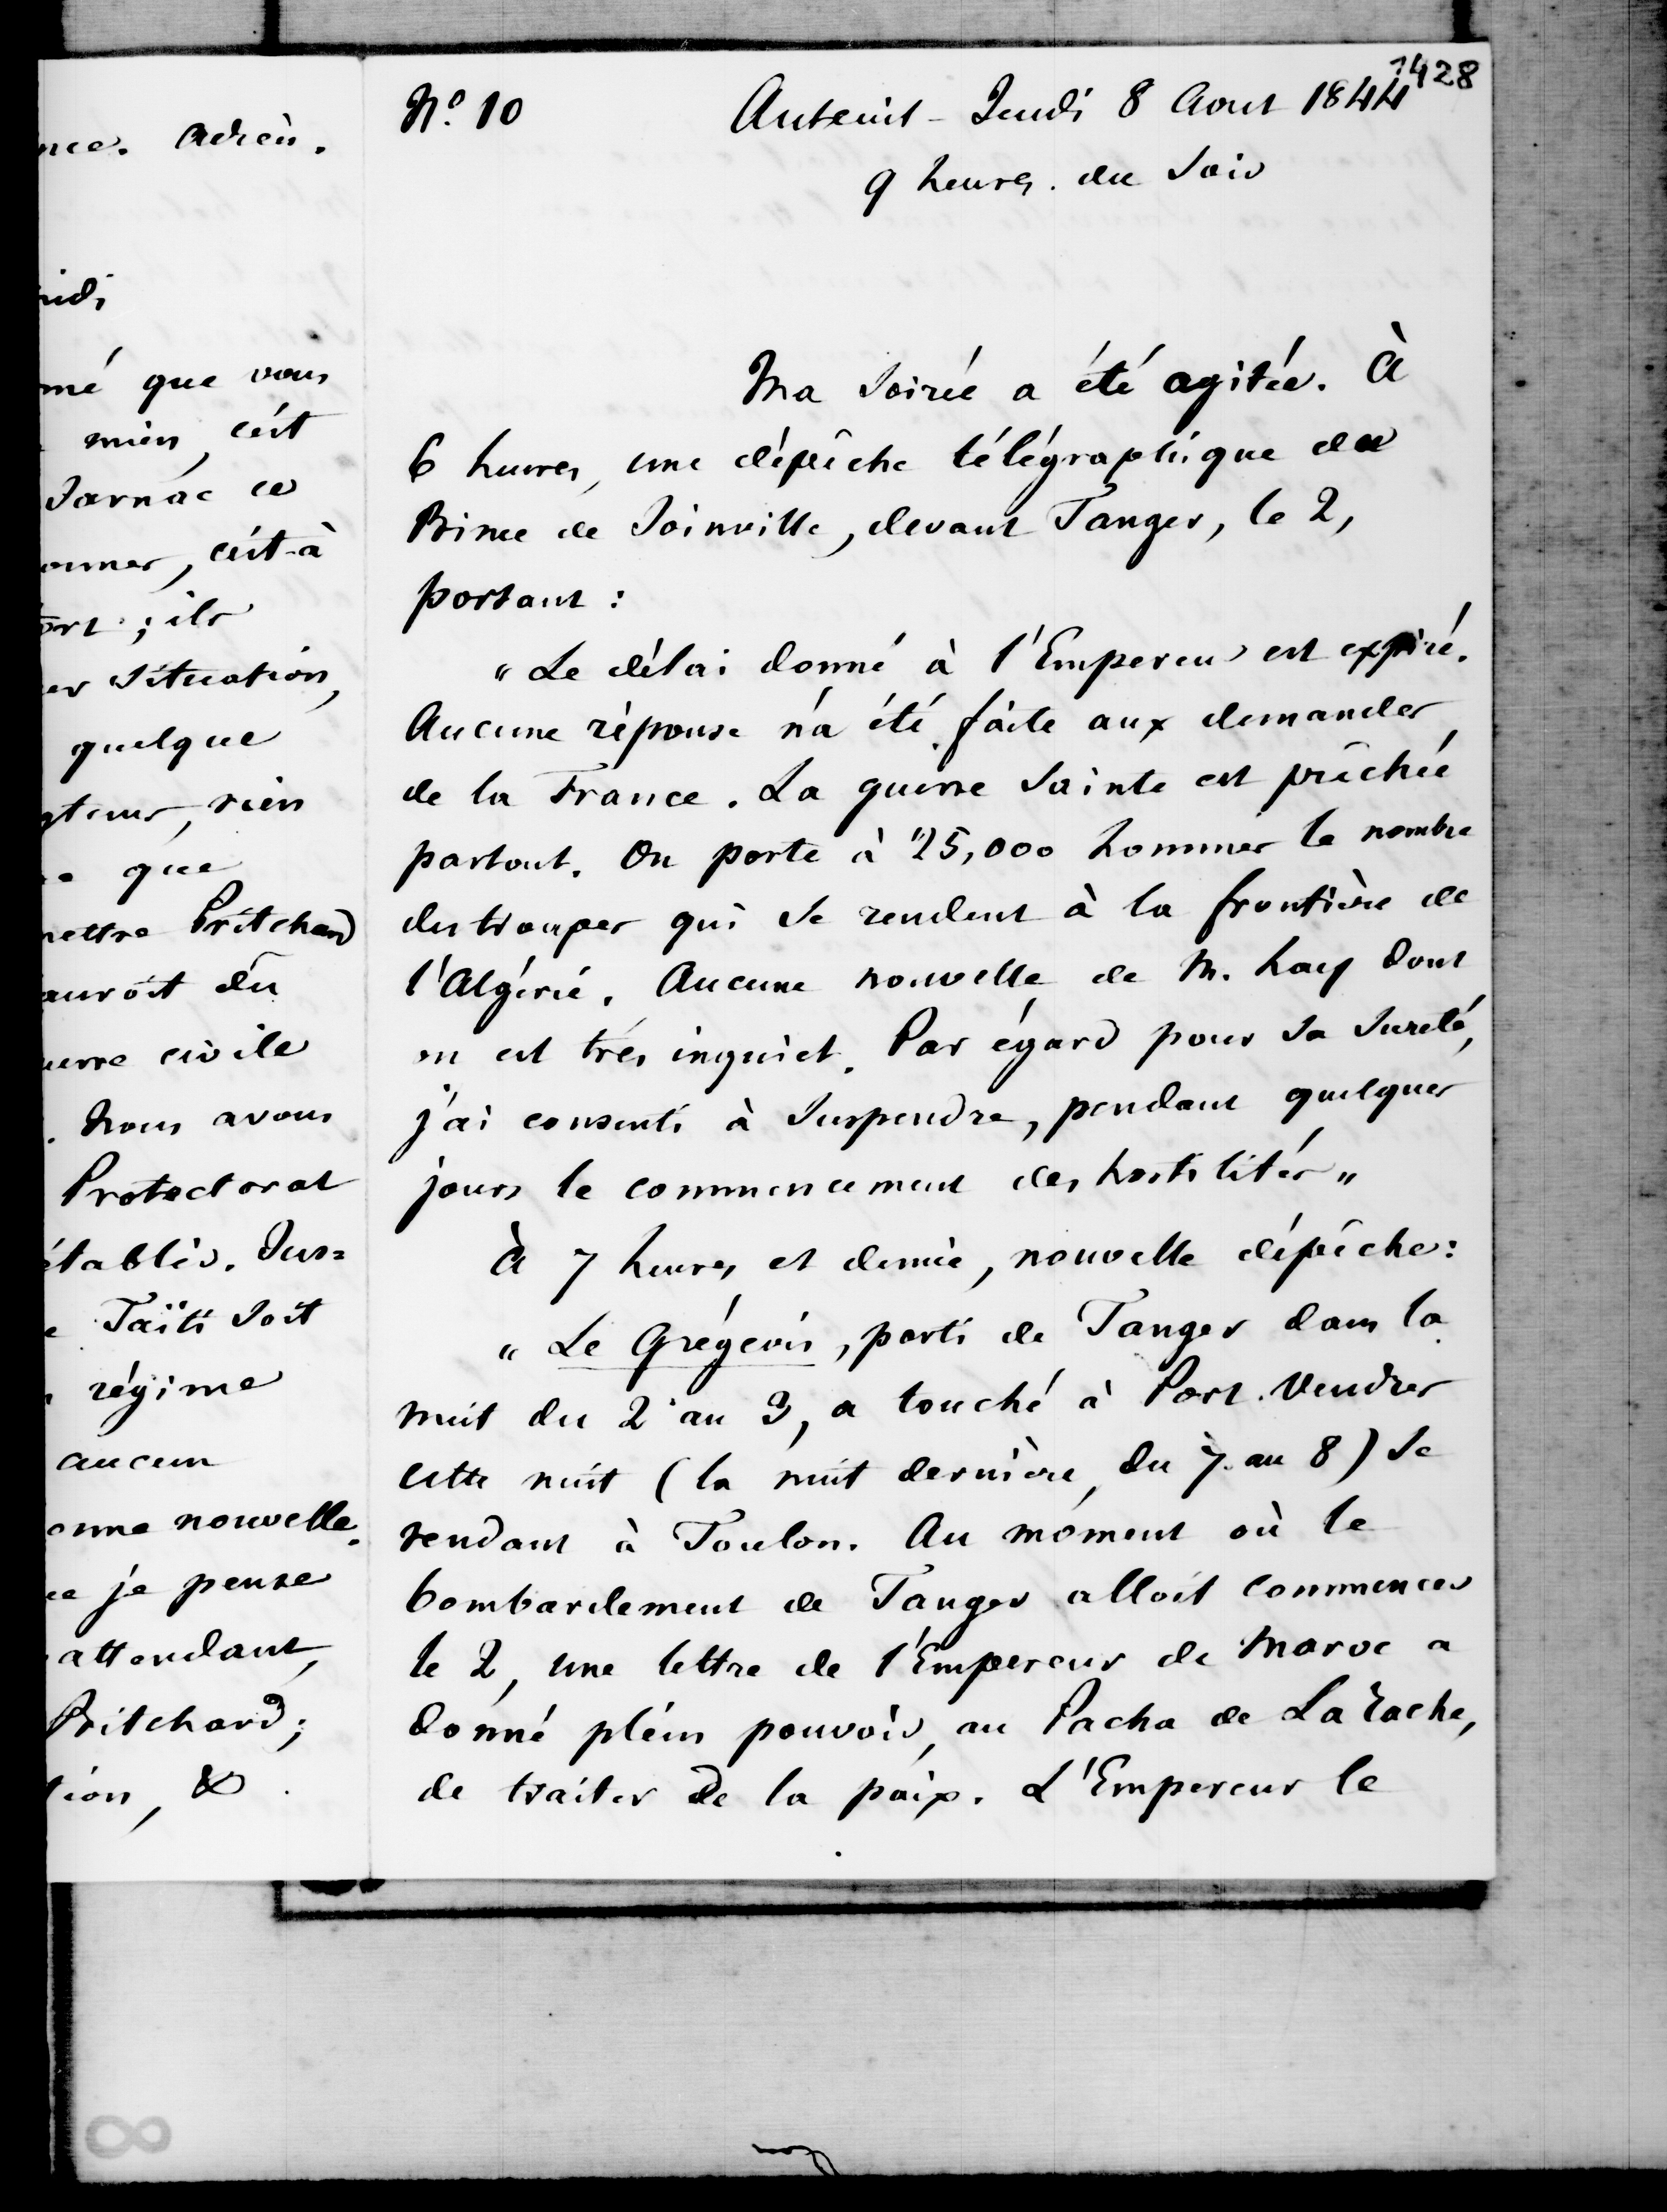 nce. adieu.
midi
mé que vous
mien, c'est
Jarnac ce
onner, c'est-à
ort ; ils
er situation,
quelque
gtems, rien
que
mettre Pritchard
auroit du
uerre civile
. Nous avons
Protectorat
établir. Jus=
e Taïti soit
régime
aucun
onne nouvelle.
ce je pense
attendant,
Pritchard ;
tion, &
1428
No. 10
Auteuil - Jeudi 8 Aout 1844
9 heures. du Soir
Ma soirée a été agitée. À
6 heures, une dépêche télégraphique du
Prince de Joinville, devant Tanger, le 2,
portant :
"Le délai donné à l'Empereur est expiré.
Aucune réponse n'a été faite aux demandes
de la France. La guerre sainte est prêchée
partout. On porte à 25,000 hommes le nombre
des troupes qui se rendent à la frontière de
l'Algérie. Aucune nouvelle de M. hay dont
on est très inquiet. Par égard pour sa sureté,
j'ai consenti à suspendre, pendant quelques
jours le commencement des hostilités"
À 7 heures et demie, nouvelle dépêche :
"Le Grégeois, parti de Tanger dans la
nuit du 2 au 3, a touché à Port-Vendres
cette nuit (la nuit dernière, du 7 au 8) se
rendant à Toulon. Au moment où le
bombardement de Tanger alloit commencer
le 2, une lettre de l'Empereur de Maroc a
donné plein pouvoir, au Pacha de Larache,
de traiter de la paix. L'Empereur le